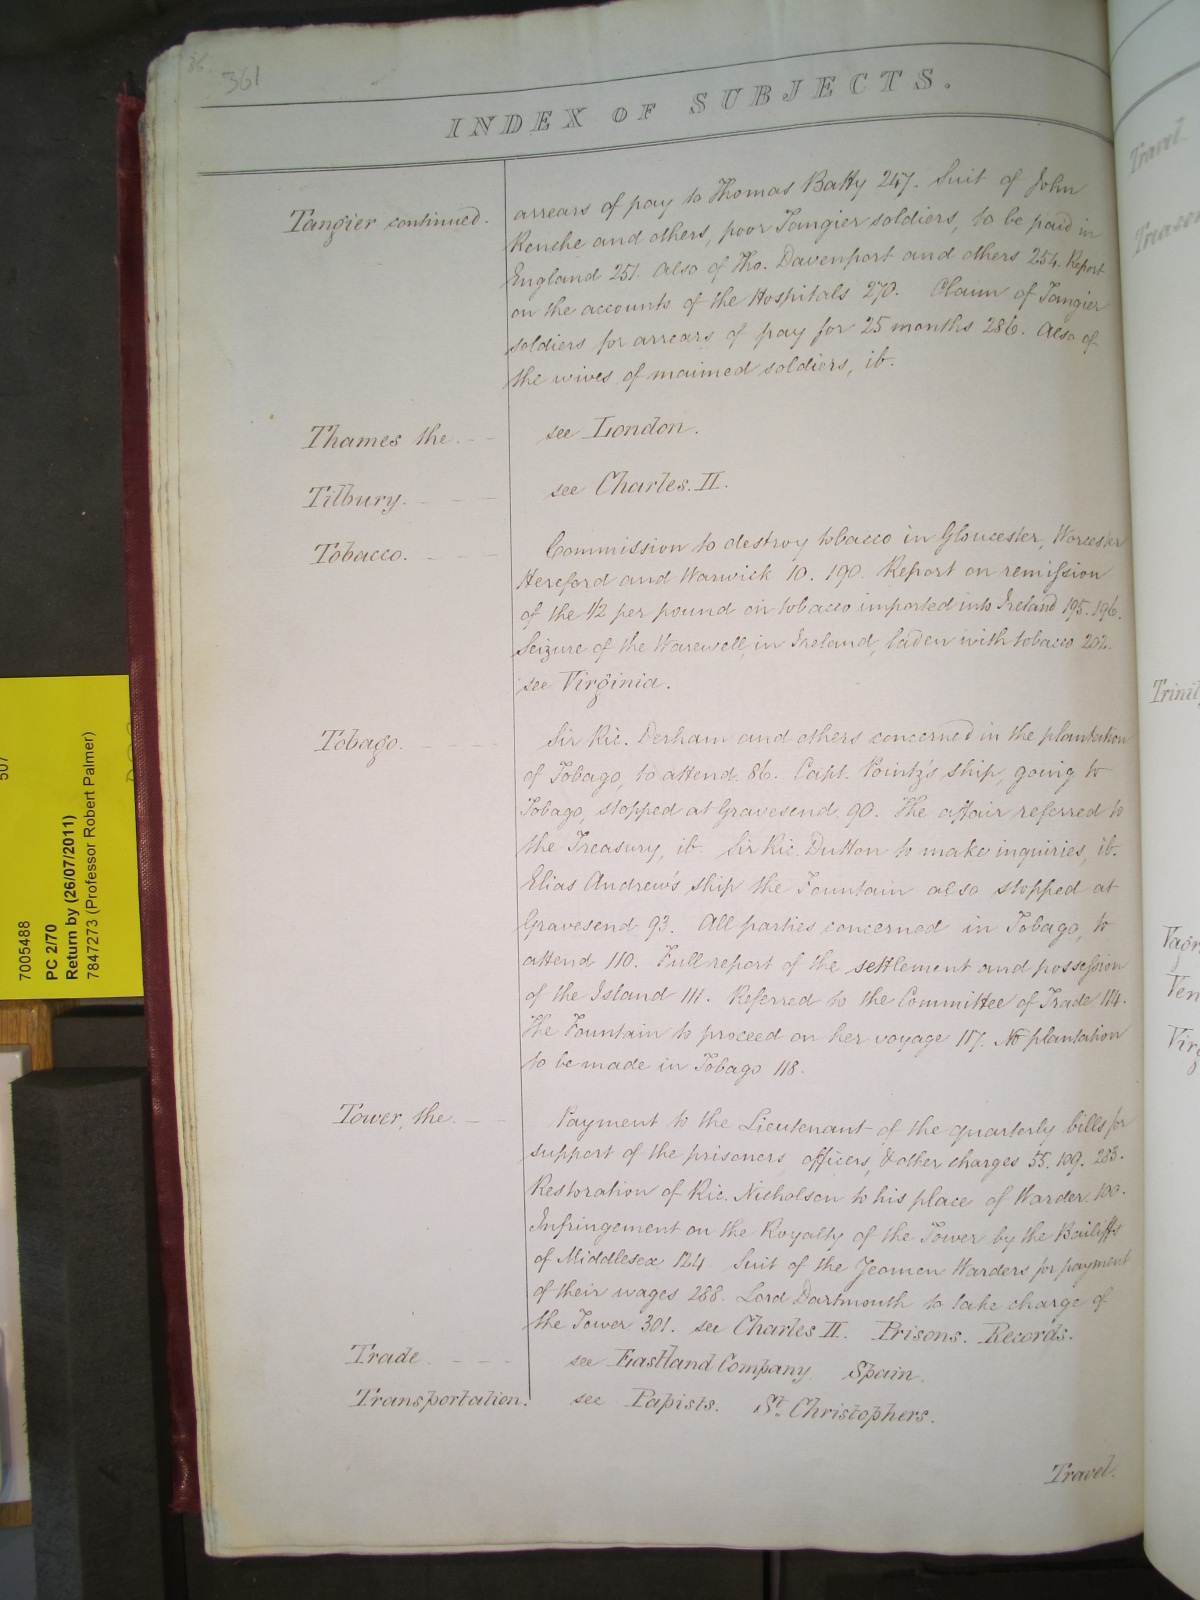 361
INDEX OF SUBJECTS.
Tangier continued. arrears of pay to Thomas Batty 247. Suit of John
Renche and others, poor Tangier soldiers, to be paid in
England 251. Also of Tho. Davenport and others 254. Report
on the accounts of the Hospitals 270. Claim of Tangier
soldiers for arrears of pay for 25 months 286. Also of
the wives of maimed soldiers, ib.
Thames the. see London.
Tilbury. see Charles. II.
Tobacco. Commission to destroy tobacco in Gloucester, Worcester
Hereford and Warwick 10. 190. Report on remission
of the ½ per pound on tobacco imported into Ireland 195. 196.
Seizure of the Warewell, in Ireland, laden with tobacco 202.
see Virginia.
Tobago. Sir Ric. Derham and others concerned in the plantation
of Tobago, to attend 86. Capt. Pointz's ship, going to
Tobago, stopped at Gravesend 90. The affair referred to
the Treasury, ib. Sir Ric. Dutton to make inquiries, ib.
Elias Andrew's ship the Fountain also stopped at
Gravesend 93. All parties concerned in Tobago, to
attend 110. Full report of the settlement and possession
of the Island 111. Referred to the Committee of Trade 114.
The Fountain to proceed on her voyage 117. No plantation
to be made in Tobago 118.
Tower, the. Payment to the Lieutenant of the quarterly bills for
support of the prisoners, officers, & other charges 55. 109. 283.
Restoration of Ric. Nicholson to his place of Warder. 100.
Infringement on the Royalty of the Tower by the Bailiffs
of Middlesex 124 Suit of the Yeomen Warders for payment
of their wages 288. Lord Dartmouth to take charge of
the Tower 301. see Charles II. Prisons. Records.
Trade. see Eastland Company. Spain.
Transportation. see Papists. St. Christophers.
Travel.
7005488
PC 2/70
Return by (26/07/2011)
7847273 (Professor Robert Palmer)
507
Travel.